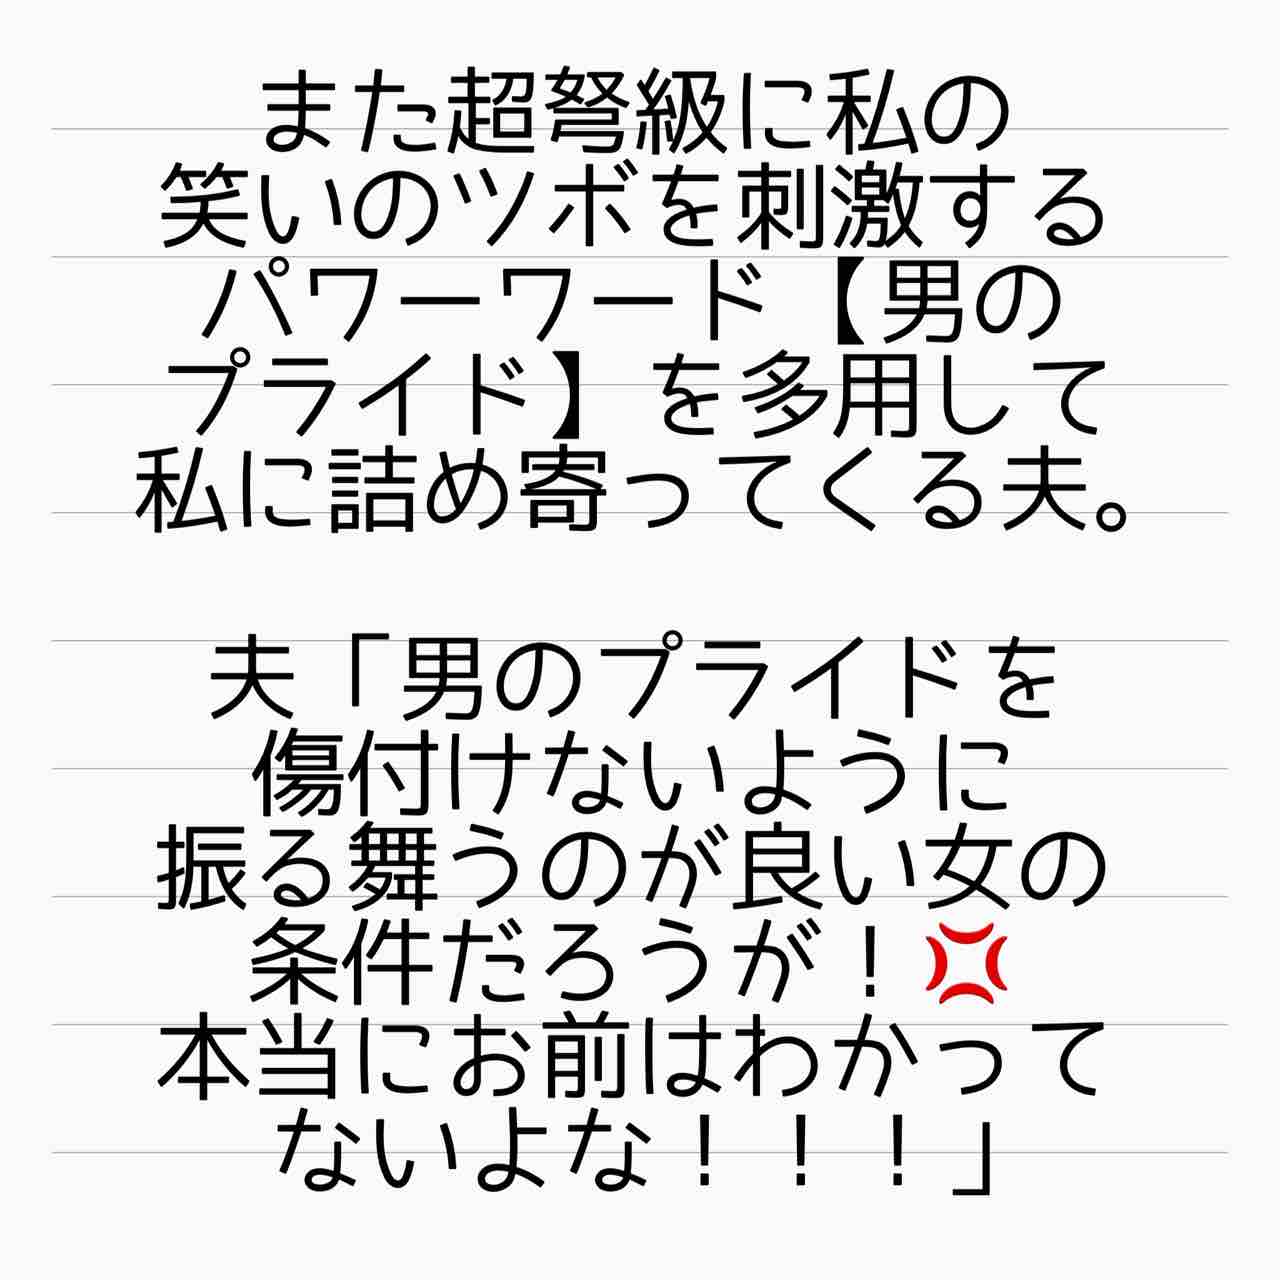 また超弩級に私の
笑いのツボを刺激する
パワーワード【男の
プライド】を多用して
私に詰め寄ってくる夫。
夫「男のプライドを
傷付けないように
振る舞うのが良い女の
条件だろうが！💢
本当にお前はわかって
ないよな！！！」